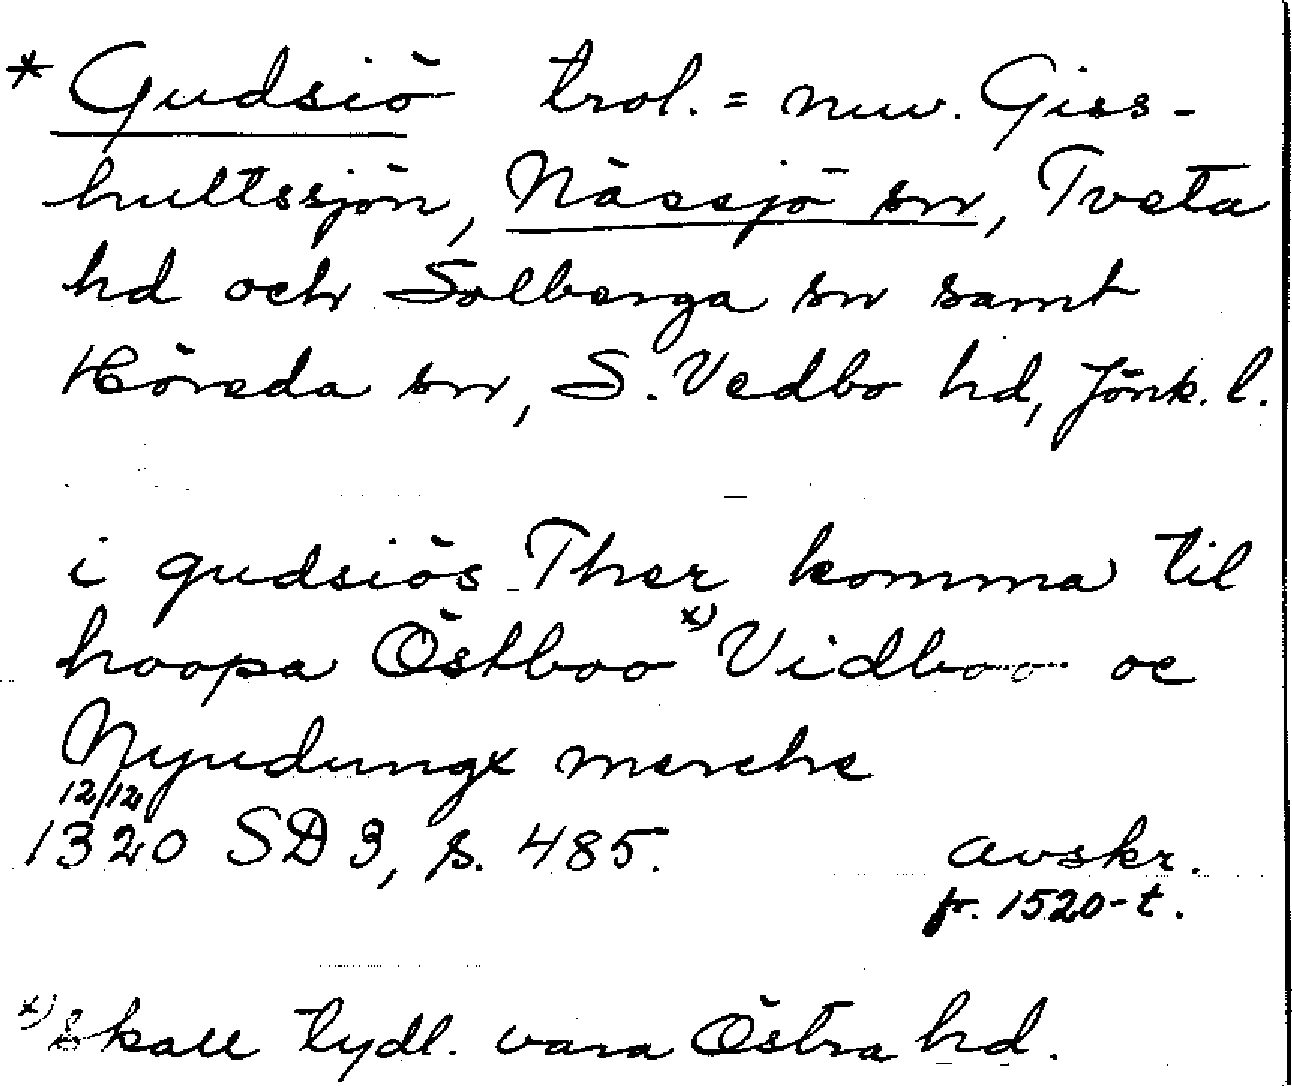 * Gudsiö trol. = nuv. Giss-
hultssjön, Nässjö sn, Tveta
hd och Solberga sn samt
Höreda sn, S. Vedbo hd, Jönk. l.
i gudsiös Ther komma til
hoopa Östboo x) Vidboo oc
Nyudungx merche
12/12
1320 SD 3, s. 485.
avskr.
fr. 1520-t.
x) skall tydl. vara Östra hd.